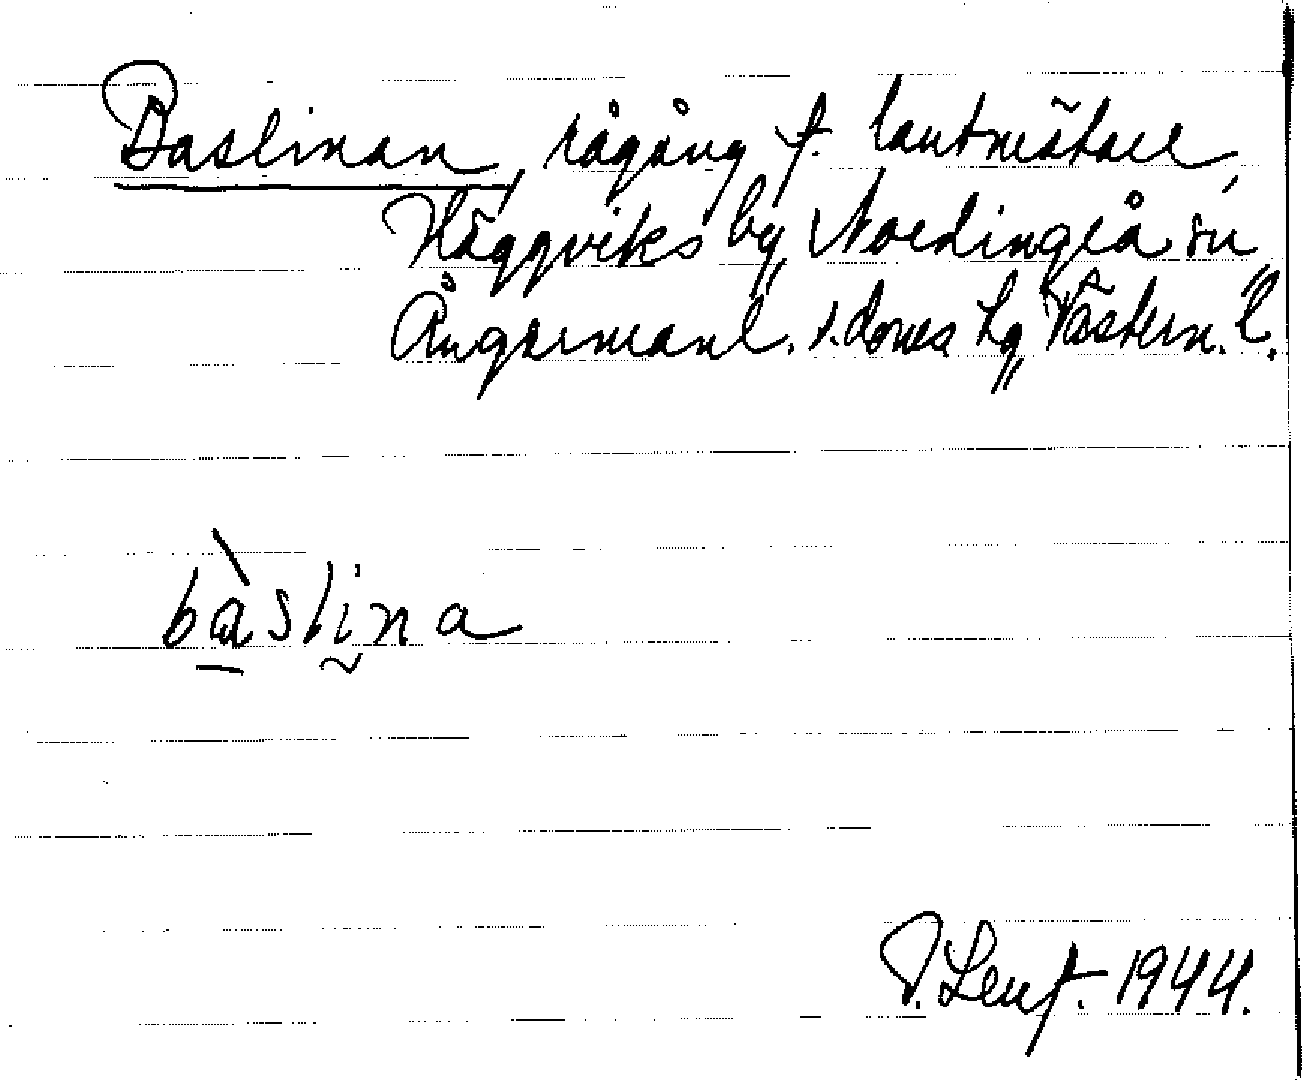 Baslinan, rågång f. lantmätare
Häggviks by, Nordingrå sn,
Ångermanl. s. domsg, Västern. l.
bàslina
T. Lenf. 1944.